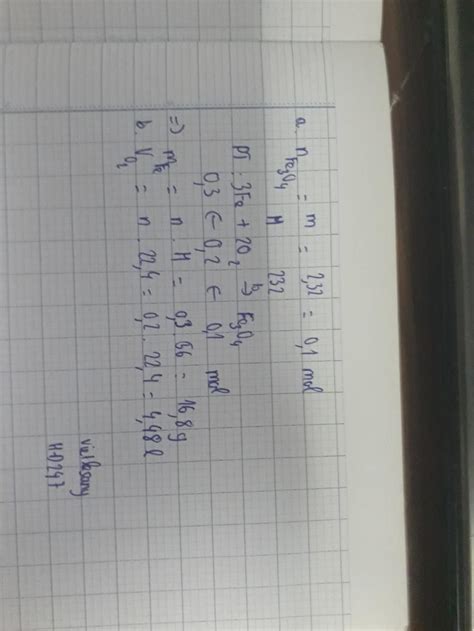 a. nFe3O4 = m/M = 2,32/232 = 0,1 mol
PT: 3Fe + 2O2 to→ Fe3O4
0,3 ← 0,2 ← 0,1 mol
=> mFe = n . M = 0,3 . 56 = 16,8g
b. VO2 = n . 22,4 = 0,2 . 22,4 = 4,48 l
vietdzsany
H+0247